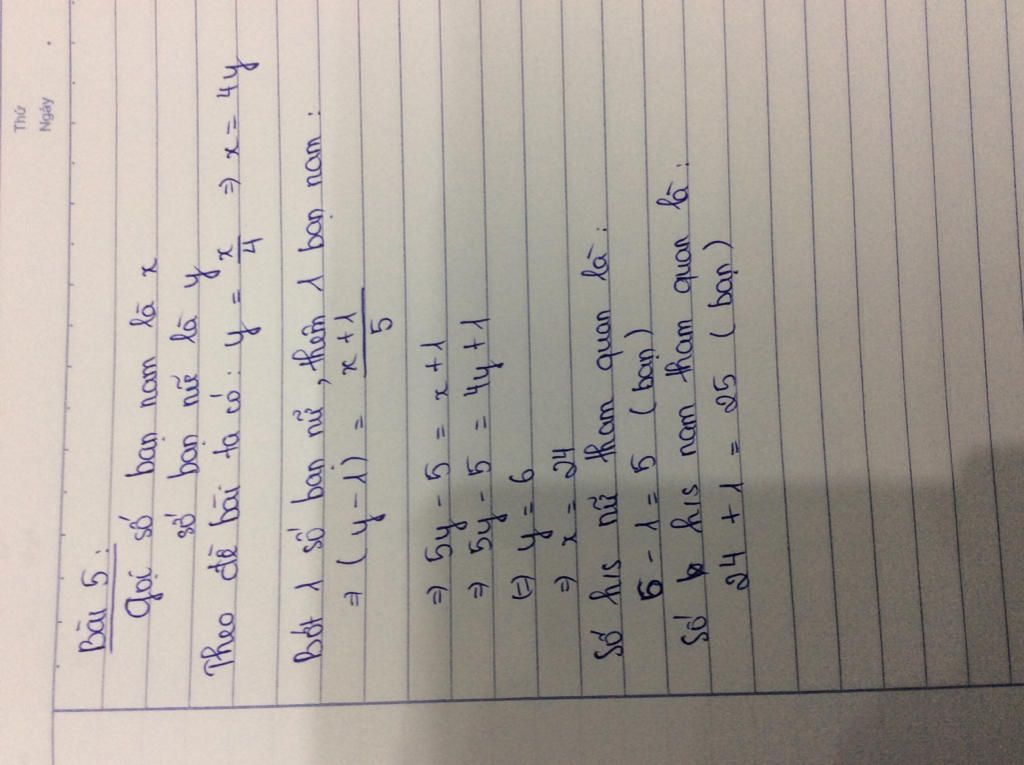 Thứ
Ngày .
Bài 5 :
Gọi số bạn nam là x
số bạn nữ là y
Theo đề bài ta có : y = x/4 => x = 4y
Bớt 1 số bạn nữ, thêm 1 bạn nam :
=> (y - 1) = x + 1 / 5
=> 5y - 5 = x + 1
=> 5y - 5 = 4y + 1
(=) y = 6
=> x = 24
Số his nữ tham quan là :
5 - 1 = 5 (bạn)
Số his nam tham quan là :
24 + 1 = 25 (bạn)